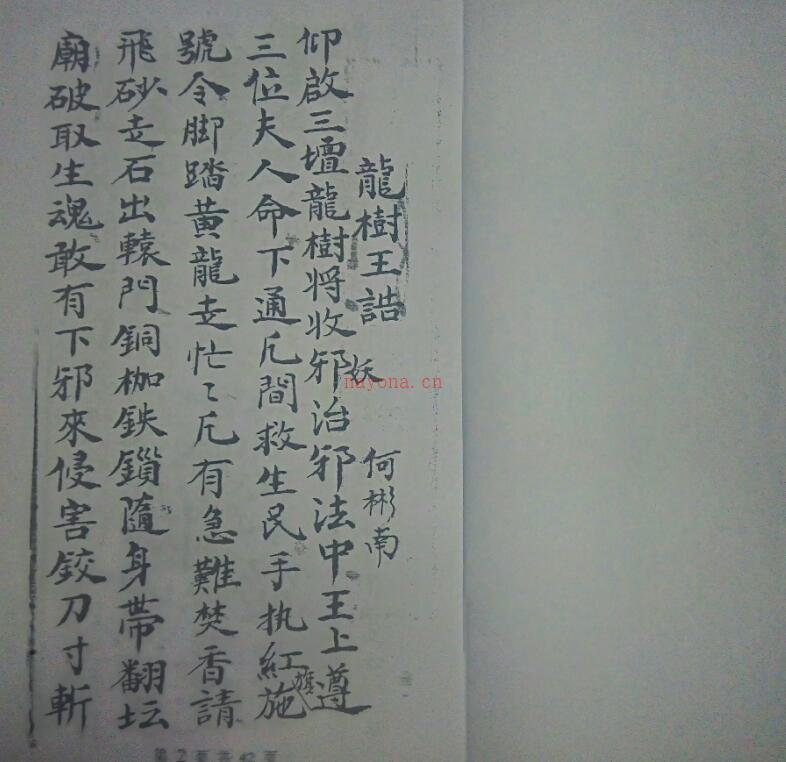 龍樹王誥 何彬南
仰啟三壇龍樹將收邪治邪法中王上遵
妖
三位夫人命下通凡間救生民手执紅施
旗
號令脚踏黄龍走忙〻凡有急難焚香請
飛砂走石出轅門銅枷鉄鎻隨身帶翻坛
廟破取生魂敢有下邪來侵害鉸刀寸斬
nayona.cn
第2页共42页